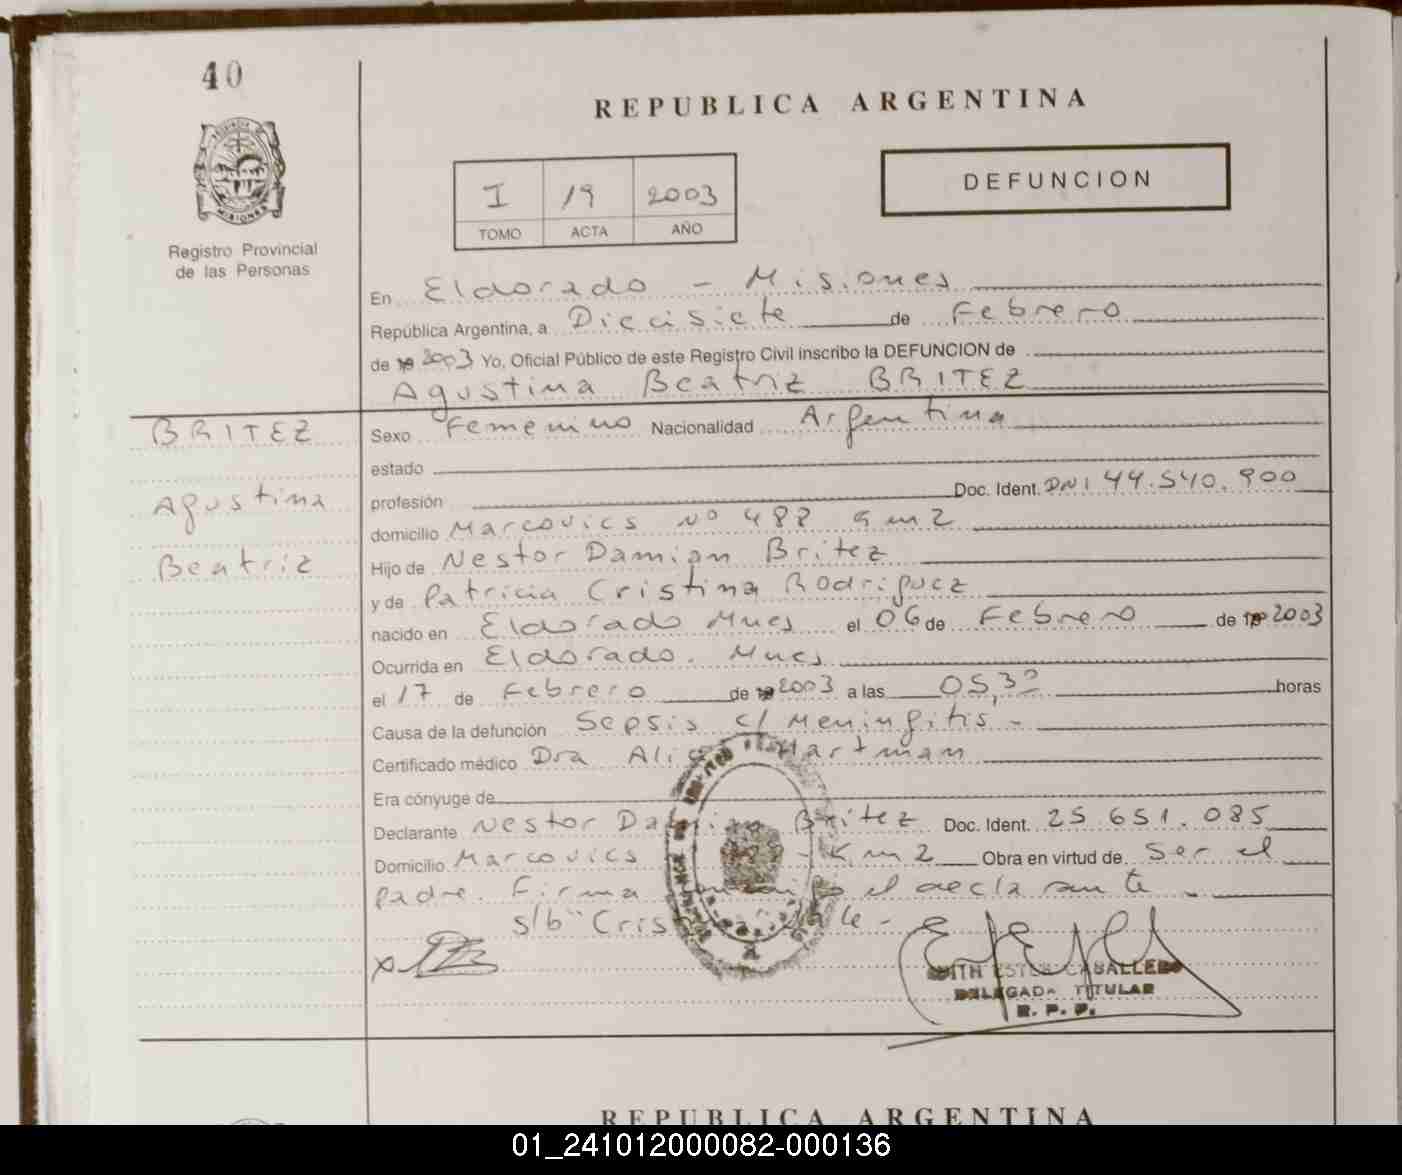 40
REPUBLICA ARGENTINA
PROVINCIA DE
MISIONES
Registro Provincial
de las Personas
I 19 2003
TOMO ACTA AÑO
DEFUNCION
En Eldorado - Misiones
República Argentina, a Diecisiete de Febrero
de 2003 Yo, Oficial Público de este Registro Civil inscribo la DEFUNCION de
Agustina Beatriz BRITEZ
BRITEZ
Agustina
Beatriz
Sexo Femenino Nacionalidad Argentina
estado
profesión Doc. Ident. DNI 44.540.900
domicilio Marcovics Nº 488 Km 2
Hijo de Nestor Damian Britez
y de Patricia Cristina Rodriguez
nacido en Eldorado Mnes el 06 de Febrero de 2003
Ocurrida en Eldorado. Mnes
el 17 de Febrero de 2003 a las 05,30 horas
Causa de la defunción Sepsis c/ Meningitis.-
Certificado médico Dra Hartman
Era cónyuge de
Declarante Nestor Damian Britez Doc. Ident. 25 651.085
Domicilio Marcovics - Km 2 Obra en virtud de Ser el
padre. Firma el declarante -
s/b "
EDITH ESTER CABALLERO
DELEGADA TITULAR
R. P. P.
REPUBLICA ARGENTINA
01_241012000082-000136